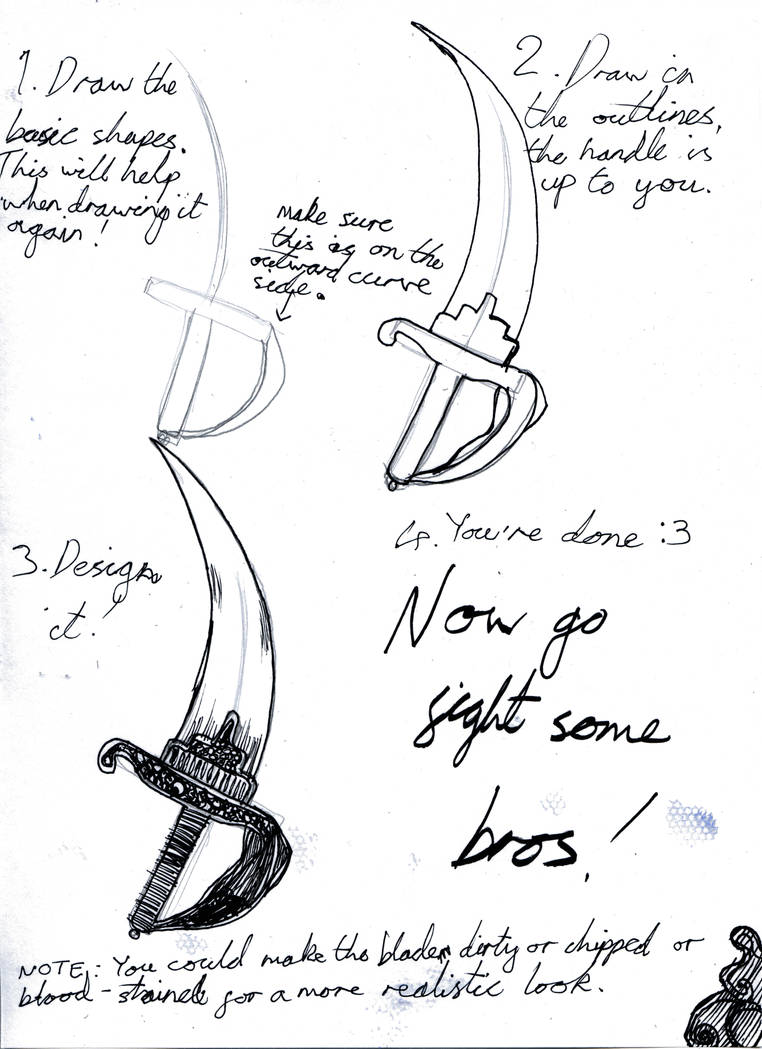 1. Draw the
basic shapes.
This will help
when drawing it
again!
make sure
this is on the
outward curve
side.
2. Draw in
the outlines,
the handle is
up to you.
3. Design
it!
4. You're done :3
Now go
fight some
bros!
NOTE: You could make the blade dirty or chipped or
blood-stained for a more realistic look.